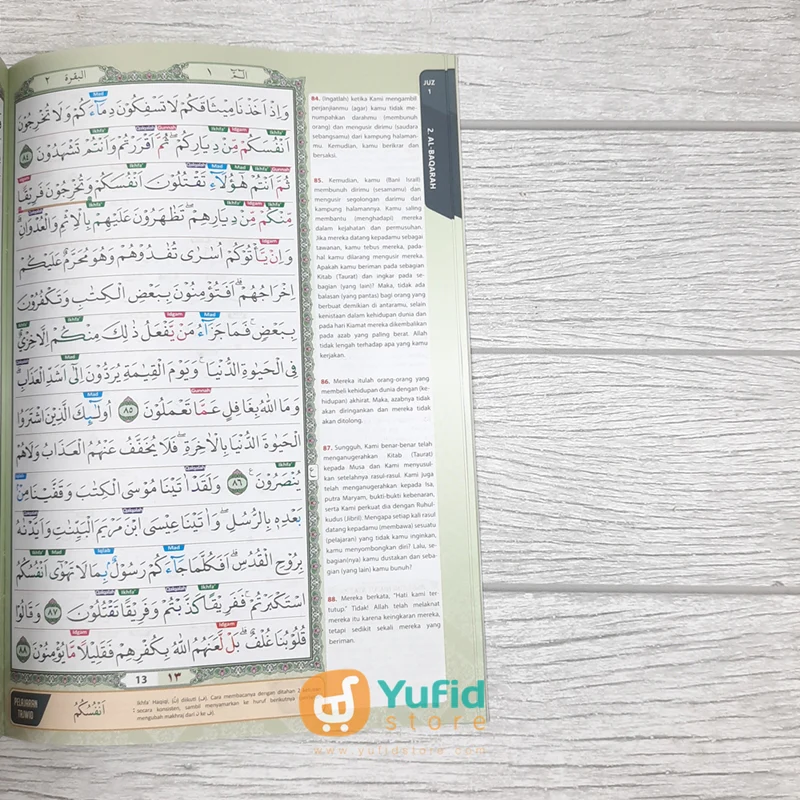 البقرة ٢
الۤمّۤ ١
وَاِذْ اَخَذْنَا مِيْثَاقَكُمْ لَا تَسْفِكُوْنَ دِمَاۤءَكُمْ وَلَا تُخْرِجُوْنَ
اَنْفُسَكُمْ مِّنْ دِيَارِكُمْ ۖ ثُمَّ اَقْرَرْتُمْ وَاَنْتُمْ تَشْهَدُوْنَ ٨٤
ثُمَّ اَنْتُمْ هٰٓؤُلَاۤءِ تَقْتُلُوْنَ اَنْفُسَكُمْ وَتُخْرِجُوْنَ فَرِيْقًا
مِّنْكُمْ مِّنْ دِيَارِهِمْ ۖ تَظٰهَرُوْنَ عَلَيْهِمْ بِالْاِثْمِ وَالْعُدْوَانِ ۗ
وَاِنْ يَّأْتُوْكُمْ اُسٰرٰى تُفٰدُوْهُمْ وَهُوَ مُحَرَّمٌ عَلَيْكُمْ
اِخْرَاجُهُمْ ۗ اَفَتُؤْمِنُوْنَ بِبَعْضِ الْكِتٰبِ وَتَكْفُرُوْنَ
بِبَعْضٍ ۚ فَمَا جَزَاۤءُ مَنْ يَّفْعَلُ ذٰلِكَ مِنْكُمْ اِلَّا خِزْيٌ
فِى الْحَيٰوةِ الدُّنْيَا ۚ وَيَوْمَ الْقِيٰمَةِ يُرَدُّوْنَ اِلٰٓى اَشَدِّ الْعَذَابِ ۗ
وَمَا اللّٰهُ بِغَافِلٍ عَمَّا تَعْمَلُوْنَ ٨٥ اُولٰۤىِٕكَ الَّذِيْنَ اشْتَرَوُا
الْحَيٰوةَ الدُّنْيَا بِالْاٰخِرَةِ ۖ فَلَا يُخَفَّفُ عَنْهُمُ الْعَذَابُ وَلَا هُمْ
يُنْصَرُوْنَ ٨٦ وَلَقَدْ اٰتَيْنَا مُوْسَى الْكِتٰبَ وَقَفَّيْنَا مِنْۢ
بَعْدِهٖ بِالرُّسُلِ ۖ وَاٰتَيْنَا عِيْسَى ابْنَ مَرْيَمَ الْبَيِّنٰتِ وَاَيَّدْنٰهُ
بِرُوْحِ الْقُدُسِ ۗ اَفَكُلَّمَا جَاۤءَكُمْ رَسُوْلٌۢ بِمَا لَا تَهْوٰٓى اَنْفُسُكُمُ
اسْتَكْبَرْتُمْ ۚ فَفَرِيْقًا كَذَّبْتُمْ وَفَرِيْقًا تَقْتُلُوْنَ ٨٧ وَقَالُوْا
قُلُوْبُنَا غُلْفٌ ۗ بَلْ لَّعَنَهُمُ اللّٰهُ بِكُفْرِهِمْ فَقَلِيْلًا مَّا يُؤْمِنُوْنَ ٨٨
13 ١٣
JUZ
1
2. AL-BAQARAH
84. (Ingatlah) ketika Kami mengambil
perjanjianmu (agar) kamu tidak me-
numpahkan darahmu (membunuh
orang) dan mengusir dirimu (saudara
sebangsamu) dari kampung halaman-
mu. Kemudian, kamu berikrar dan
bersaksi.
85. Kemudian, kamu (Bani Israil)
membunuh dirimu (sesamamu) dan
mengusir segolongan darimu dari
kampung halamannya. Kamu saling
membantu (menghadapi) mereka
dalam kejahatan dan permusuhan.
Jika mereka datang kepadamu sebagai
tawanan, kamu tebus mereka, pada-
hal kamu dilarang mengusir mereka.
Apakah kamu beriman pada sebagian
Kitab (Taurat) dan ingkar pada se-
bagian (yang lain)? Maka, tidak ada
balasan (yang pantas) bagi orang yang
berbuat demikian di antaramu, selain
kenistaan dalam kehidupan dunia dan
pada hari Kiamat mereka dikembalikan
pada azab yang paling berat. Allah
tidak lengah terhadap apa yang kamu
kerjakan.
86. Mereka itulah orang-orang yang
membeli kehidupan dunia dengan (ke-
hidupan) akhirat. Maka, azabnya tidak
akan diringankan dan mereka tidak
akan ditolong.
87. Sungguh, Kami benar-benar telah
menganugerahkan Kitab (Taurat)
kepada Musa dan Kami menyusul-
kan setelahnya rasul-rasul. Kami juga
telah menganugerahkan kepada Isa,
putra Maryam, bukti-bukti kebenaran,
serta Kami perkuat dia dengan Ruhul-
kudus (Jibril). Mengapa setiap kali rasul
datang kepadamu (membawa) sesuatu
(pelajaran) yang tidak kamu inginkan,
kamu menyombongkan diri? Lalu, se-
bagian(nya) kamu dustakan dan seba-
gian (yang lain) kamu bunuh?
88. Mereka berkata, "Hati kami ter
tutup." Tidak! Allah telah melaknat
mereka itu karena keingkaran mereka,
tetapi sedikit sekali mereka yang
beriman.
PELAJARAN
TAJWID
اَنْفُسُكُمْ
Ikhfa' Haqiqi,
diikuti (ف). Cara membacanya dengan ditahan 2
secara konsisten, sambil menyamarkan ke huruf berikutnya
mengubah makhroj dari ن ke ف.
Yufid
store
www.yufidstore.com